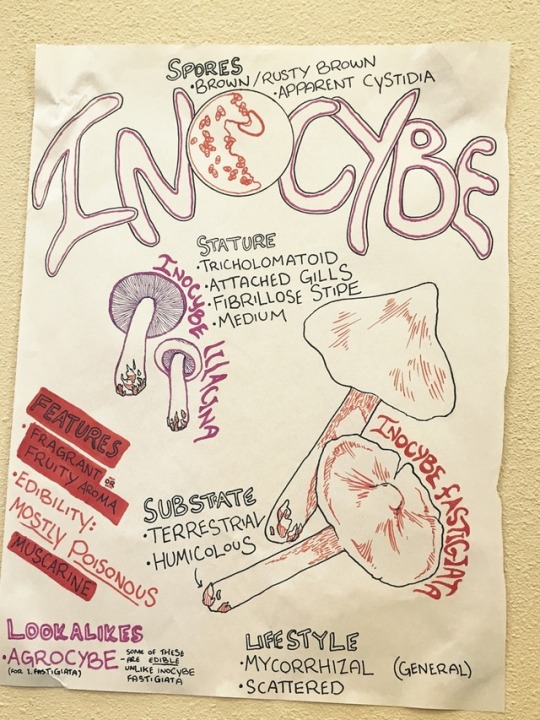 SPORES
• BROWN/RUSTY BROWN
• APPARENT CYSTIDIA
INOCYBE
STATURE
• TRICHOLOMATOID
• ATTACHED GILLS
• FIBRILLOSE STIPE
• MEDIUM
INOCYBE LILACINA
INOCYBE FASTIGIATA
FEATURES
• FRAGRANT OR
FRUITY AROMA
• EDIBILITY:
MOSTLY POISONOUS
MUSCARINE
SUBSTRATE
• TERRESTRIAL
• HUMICOLOUS
LOOKALIKES
• AGROCYBE
(FOR I. FASTIGIATA)
SOME OF THESE
- ARE EDIBLE
UNLIKE INOCYBE
FASTIGIATA
LIFESTYLE
• MYCORRHIZAL (GENERAL)
• SCATTERED